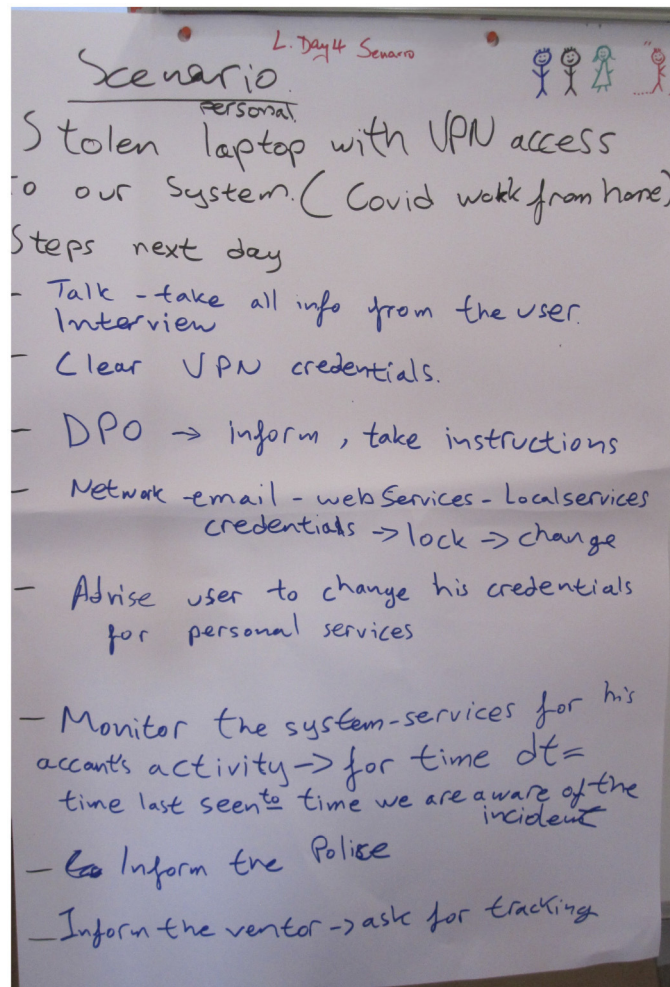 L. Day4 Senarro
Scenario
personal
Stolen laptop with VPN access
to our System. (Covid work from home)
Steps next day
- Talk - take all info from the user.
Interview
- Clear VPN credentials.
- DPO → inform, take instructions
- Network - email - webServices - Localservices
credentials → lock → change
- Advise user to change his credentials
for personal services
- Monitor the system-services for his
accant's activity → for time dt=
time last seen to time we are aware of the
incident
- Inform the Police
- Inform the ventor → ask for tracking